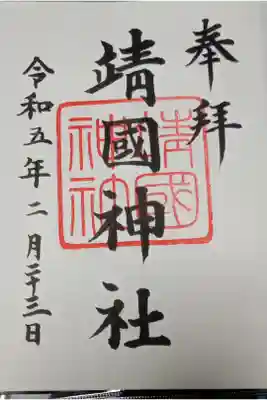 奉拜
靖國神社
靖國
神社
令和五年二月二十三日